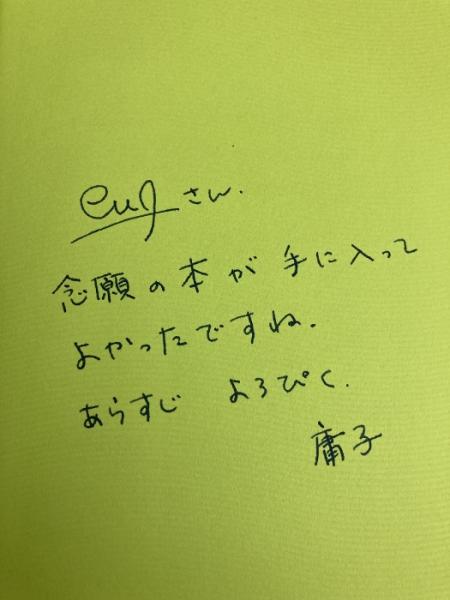 eugさん.
念願の本が手に入って
よかったですね.
あらすじ よろぴく.
庸子